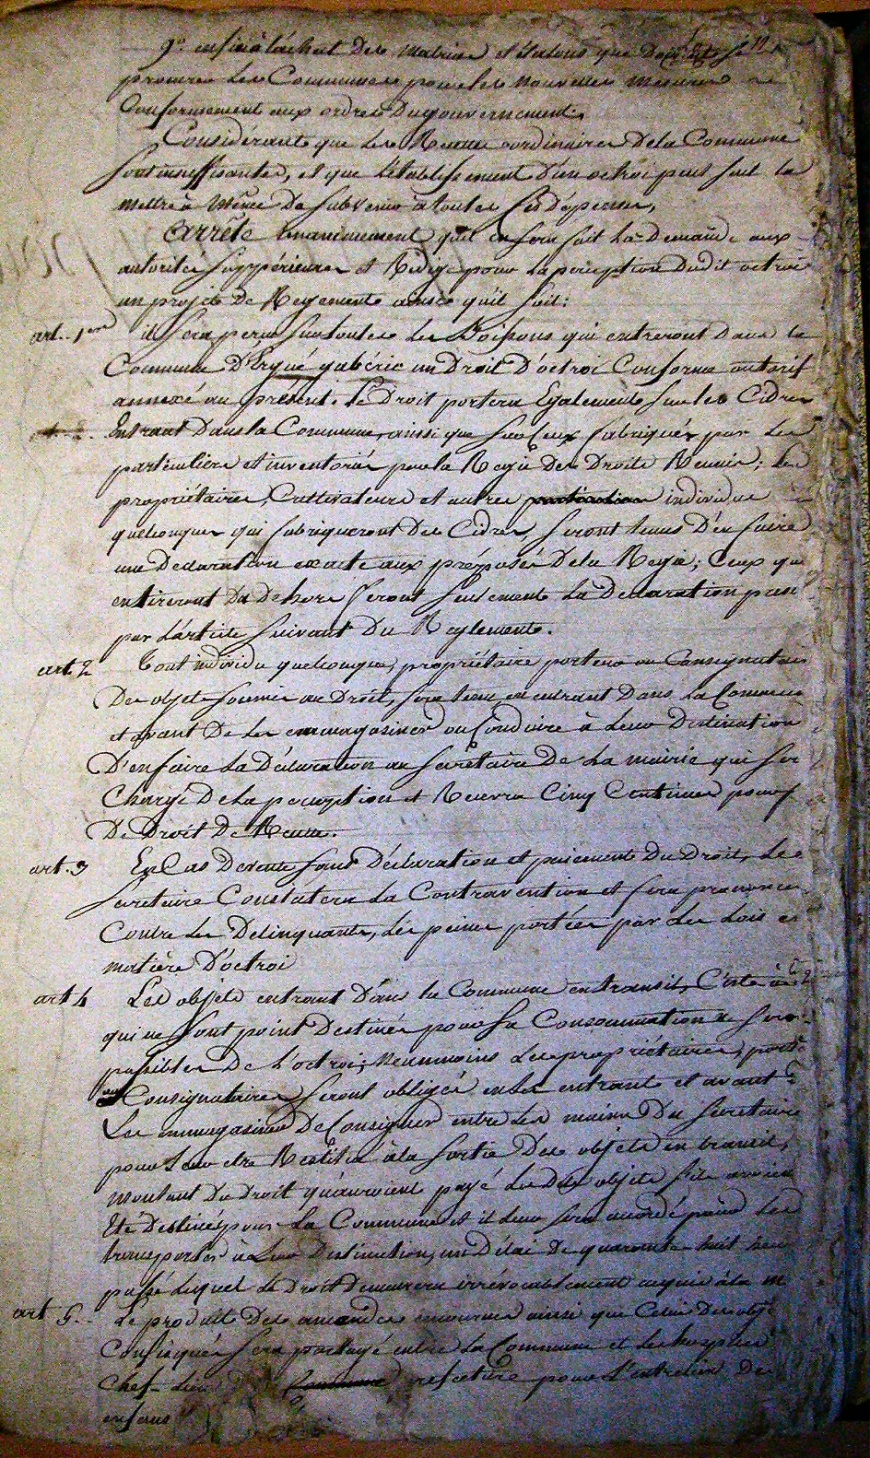 9° enfin à l'achat des matrices et étalons que doit se
procurer les Communes pour les nouvelles mesures
Conformement aux ordres du gouvernement.
Considérant que les Revenus ordinaires de la Commune
sont insuffisantes, et que l'établissement d'un octroi peut seul la
mettre à même de subvenir à toutes ces dépenses,
Arrête unanimement qu'il en sera fait la demande aux
autorités suppérieures et Rédige pour la perception dudit octroi
un projet de Reglement ainsi qu'il suit:
art. 1er il sera perçu sur toutes les Boissons qui entreront dans la
Commune d'Ergué gabéric un Droit d'octroi Conforme au tarif
annexé au présent. Le Droit portera Egalement sur les Cidres
Entrant dans la Commune, ainsi que sur Ceux fabriqués par les
particuliers et inventoriés pour la Régie des Droits Réunis; les
propriétaires, Cultivateurs et autres individus
quelconques qui fabriqueront des Cidres, seront tenus d'en faire
une Declaration exacte aux préposés de la Regie; Ceux qui
en tireront du dehors feront seulement la Declaration
par l'article suivant du Reglement.
art. 2 Tout individu quelconque, propriétaire porteur ou Consignataire
des objets soumis au Droit, sera tenu en entrant dans la Commune
et avant de les emmagasiner ou Conduire à leur Destination
D'en faire la Déclaration au secrétaire de la mairie qui sera
Chargé de la perception et Recevra Cinq Centimes pour
De Droit de
art. 3 En Cas de vente sans Déclaration et paiement du Droit, le
secretaire Constatera la Contravention et sera prononcé
Contre les Délinquants, les peines portées par les lois en
matière D'octroi
art 4 Les objets entrant dans la Commune en transit, C'est à
qui ne sont point Destinés pour sa Consommation ne seront
passibles de l'octroi; néanmoins les propriétaires, port.
ou Consignataires seront obligés en les entrant et avant
Les emmagasiner de Consigner entre les mains du secretaire
pour leur etre Restitué à la sortie des objets en transit,
montant du Droit qu'auroient payé les dits objets s'ils avoient
Eté Destinés pour la Commune et il leur sera accordé pour les
transporter à Leur Destination, un Délai de quarante huit heures
passé lequel le Droit demeurera irrévocablement acquis à la
art 5. Le produit des amandes encourues ainsi que Celui des objets
Confisqués sera partagé entre la Commune et les hospices
Chef-lieu de prefecture pour l'entretien des
enfans